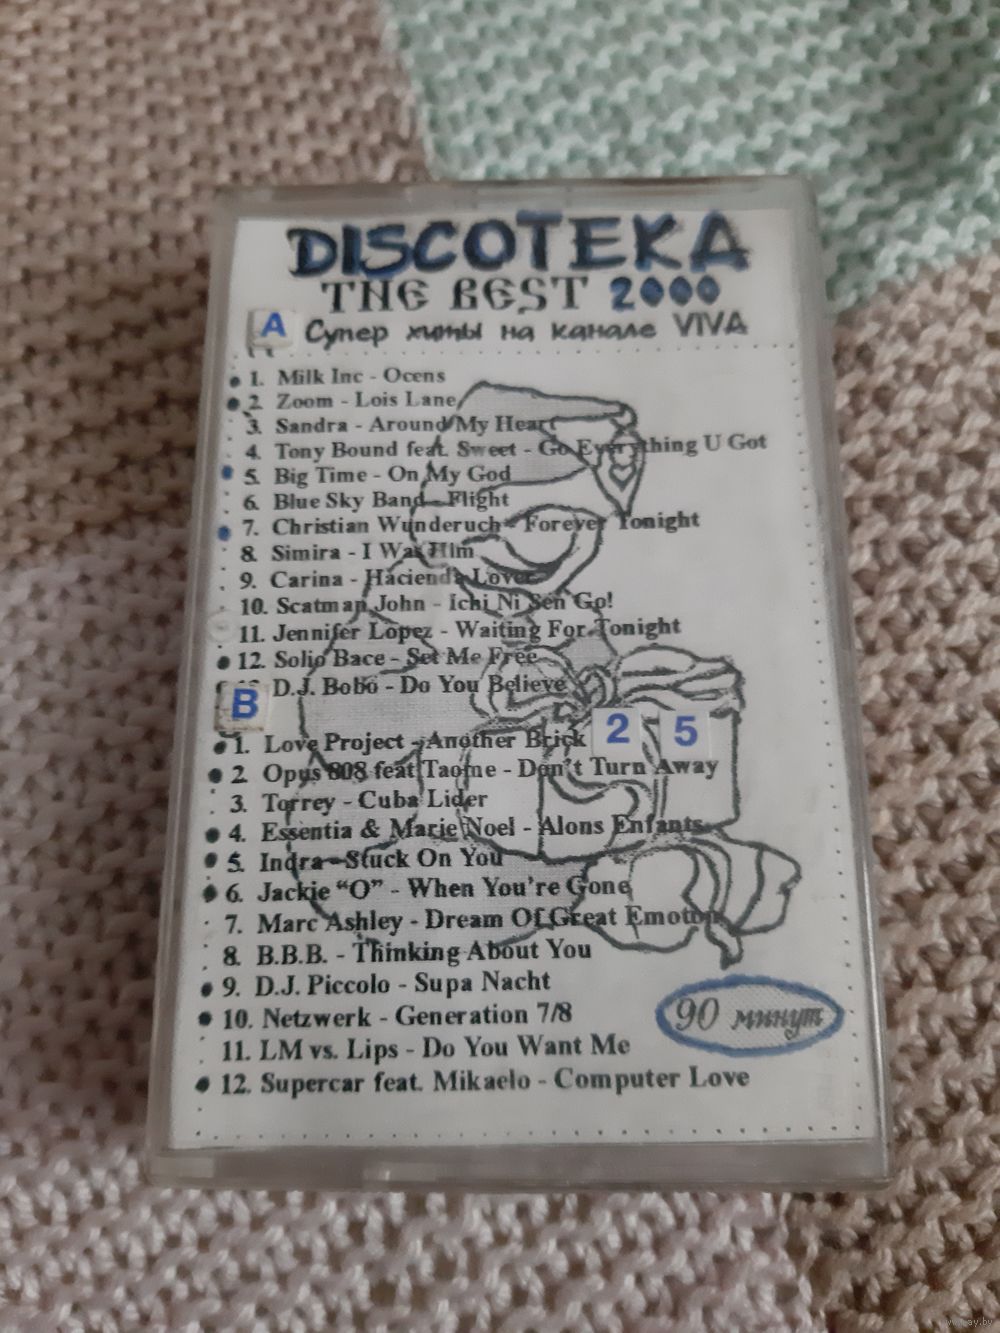 DISCOTEKA
THE BEST 2000
A Супер хиты на канале VIVA
1. Milk Inc - Ocens
2. Zoom - Lois Lane
3. Sandra - Around My Heart
4. Tony Bound feat. Sweet - Go Everything U Got
5. Big Time - On My God
6. Blue Sky Band - Flight
7. Christian Wunderuch - Forever Tonight
8. Simira - I Was Him
9. Carina - Hacienda Lover
10. Scatman John - Ichi Ni Sen Go!
11. Jennifer Lopez - Waiting For Tonight
12. Solio Bace - Set Me Free
D.J. Bobo - Do You Believe
B
1. Love Project - Another Brick 2 5
2. Opus 808 feat Taome - Don't Turn Away
3. Torrey - Cuba Lider
4. Essentia & Marie Noel - Alons Enfants
5. Indra - Stuck On You
6. Jackie "O" - When You're Gone
7. Marc Ashley - Dream Of Great Emotion
8. B.B.B. - Thinking About You
9. D.J. Piccolo - Supa Nacht
10. Netzwerk - Generation 7/8
90 минут
11. LM vs. Lips - Do You Want Me
12. Supercar feat. Mikaelo - Computer Love